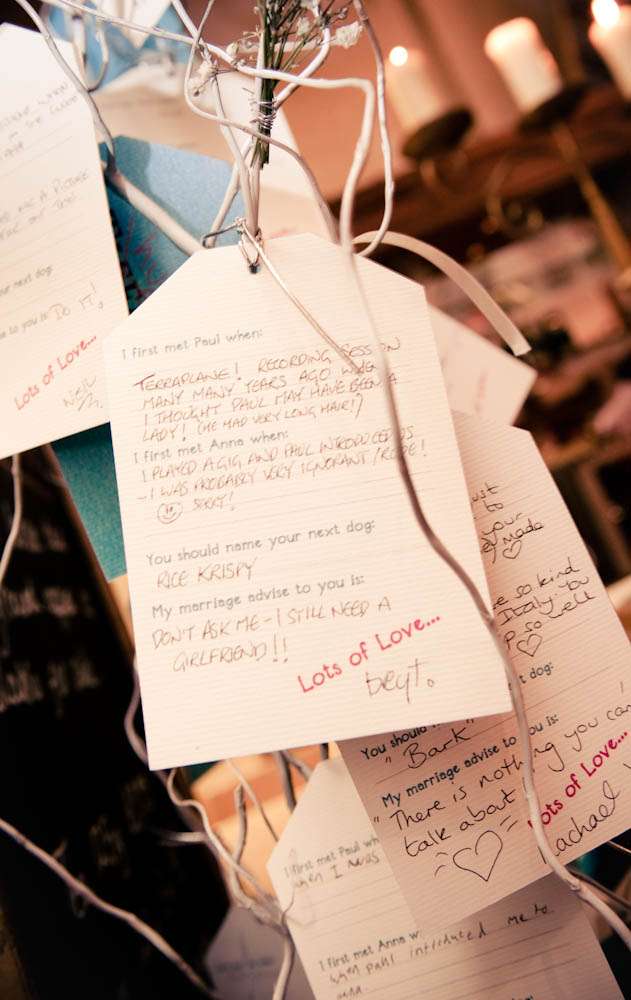 ME A PICTURE
next dog:
to you is: DO IT!
Lots of Love...
Neil
I first met Paul when:
TERRAPLANE! RECORDING SESSION
MANY MANY YEARS AGO WHEN
I THOUGHT PAUL MAY HAVE BEEN A
LADY! (HE HAD VERY LONG HAIR!)
I first met Anna when:
I PLAYED A GIG AND PAUL INTRODUCED US
- I WAS PROBABLY VERY IGNORANT/RUDE!
SORRY!
You should name your next dog:
RICE KRISPY
My marriage advise to you is:
DON'T ASK ME - I STILL NEED A
GIRLFRIEND!!
Lots of Love...
to
your
Made
so kind
Italy. You
so well
dog:
You should
"Bark"
My marriage advise to you is:
"There is nothing you can't
talk about
Lots of Love...
Rachael
I first met Paul
when I was
I first met Anna w
when paul introduced me to